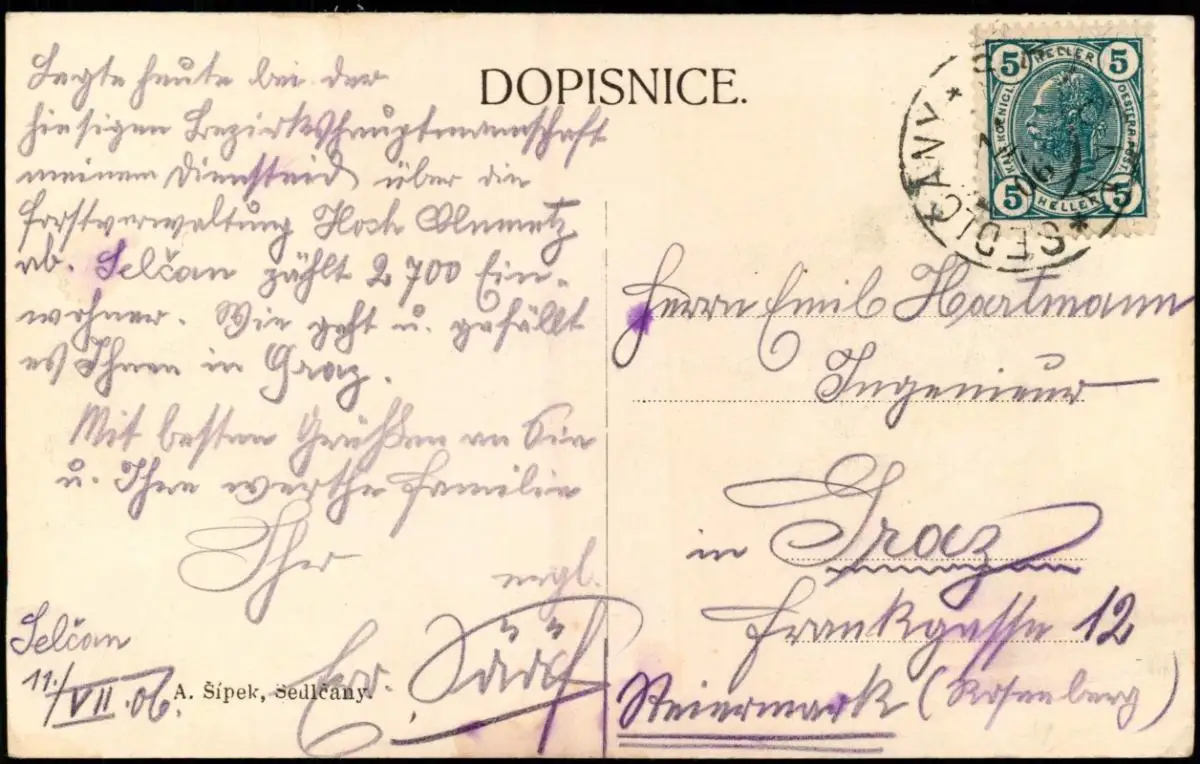 DOPISNICE.
Legte heute bei der
hiesigen Bezirkshauptmannschaft
meinen Diensteid über die
Forstverwaltung Hoch Chlumetz
ab. Selčan zählt 2700 Ein-
wohner. Wie geht u. gefällt
es Ihnen in Graz.
Mit besten Grüßen an Sie
u. Ihre werthe Familie
Ihr
ergl.
Selčan
11./VII.06.
A. Šípek, Sedlčany.
5 HELLER 5
KAIS. KOENIGL. OESTERR. POST.
5 HELLER 5
SEDLČANY
Herrn Emil Hartmann
Ingenieur
in Graz
Frankgasse 12
Steiermark (Rosenberg)